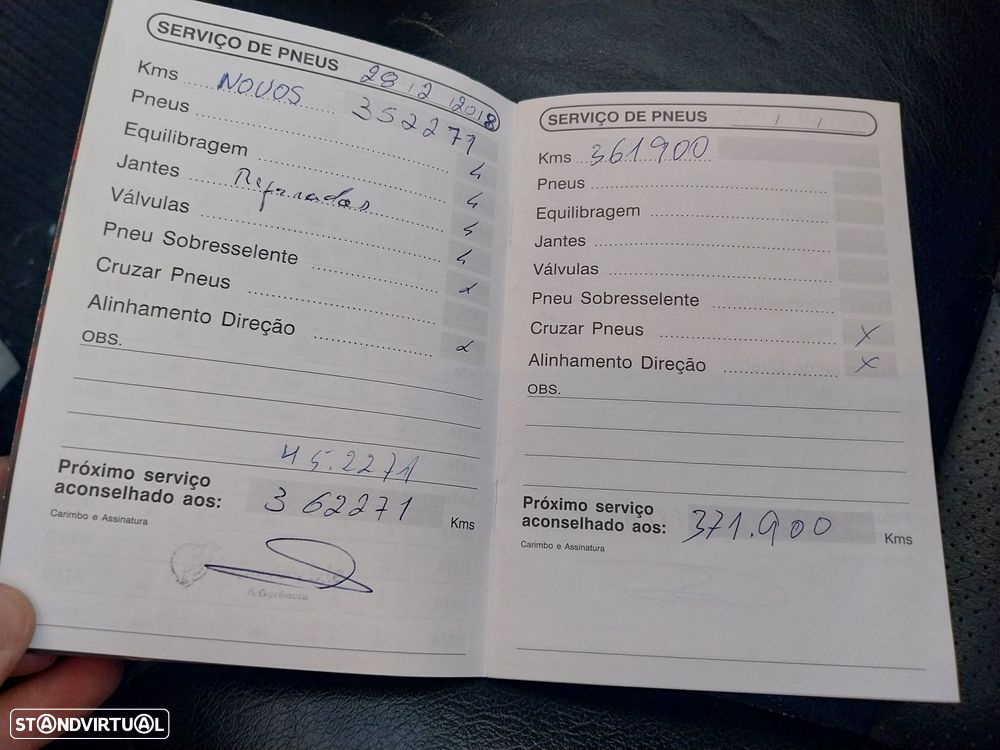 SERVIÇO DE PNEUS 28 12 2018
Kms NOVOS 352271
Pneus 4
Equilibragem 4
Jantes Reparadas 4
Válvulas 4
Pneu Sobresselente x
Cruzar Pneus
Alinhamento Direção x
OBS.
45.2271
Próximo serviço
aconselhado aos: 362271 Kms
Carimbo e Assinatura
A Gerência
SERVIÇO DE PNEUS / /
Kms 361900
Pneus
Equilibragem
Jantes
Válvulas
Pneu Sobresselente
Cruzar Pneus X
Alinhamento Direção X
OBS.
Próximo serviço
aconselhado aos: 371.900 Kms
Carimbo e Assinatura
STANDVIRTUAL